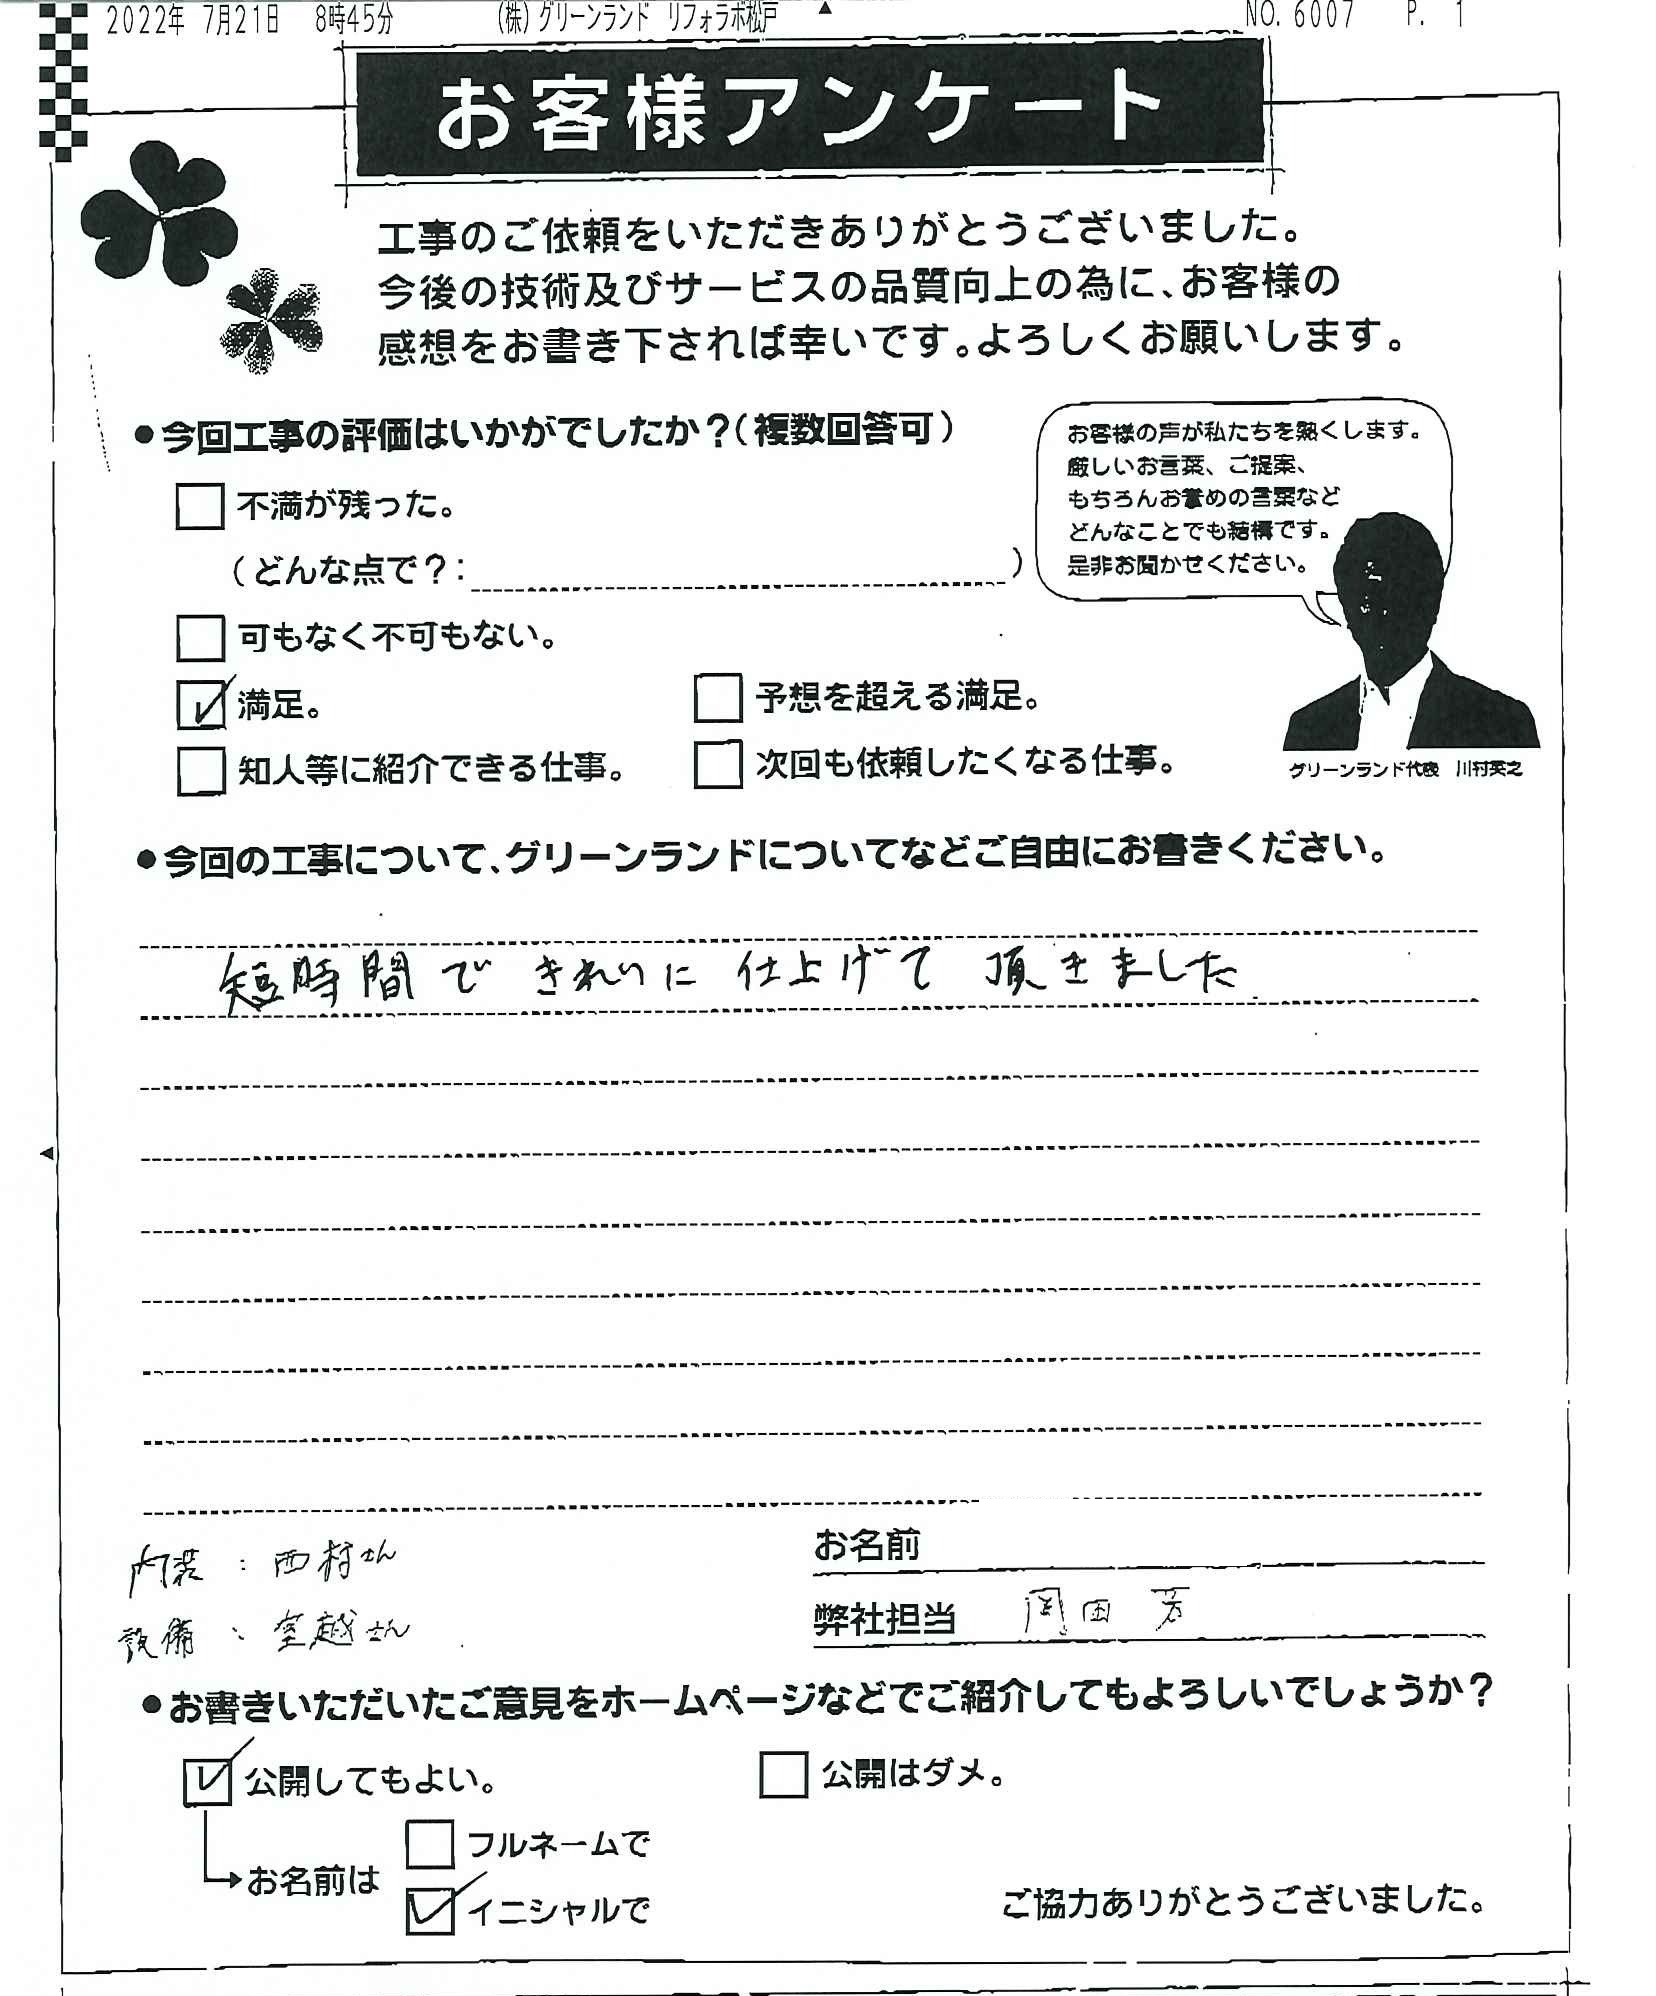 2022年 7月21日 8時45分 (株)グリーンランド リフォラボ松戸 NO. 6007 P. 1
お客様アンケート
工事のご依頼をいただきありがとうございました。
今後の技術及びサービスの品質向上の為に、お客様の
感想をお書き下されば幸いです。よろしくお願いします。
●今回工事の評価はいかがでしたか?(複数回答可)
不満が残った。
(どんな点で?: )
可もなく不可もない。
満足。 予想を超える満足。
知人等に紹介できる仕事。 次回も依頼したくなる仕事。
お客様の声が私たちを熱くします。
厳しいお言葉、ご提案、
もちろんお誉めの言葉など
どんなことでも結構です。
是非お聞かせください。
グリーンランド代表 川村英之
●今回の工事について、グリーンランドについてなどご自由にお書きください。
短時間で きれいに 仕上げて 頂きました
内装 : 西村さん
設備 : 室越さん
お名前
弊社担当 岡田 芳
●お書きいただいたご意見をホームページなどでご紹介してもよろしいでしょうか?
公開してもよい。 公開はダメ。
お名前は フルネームで
イニシャルで
ご協力ありがとうございました。